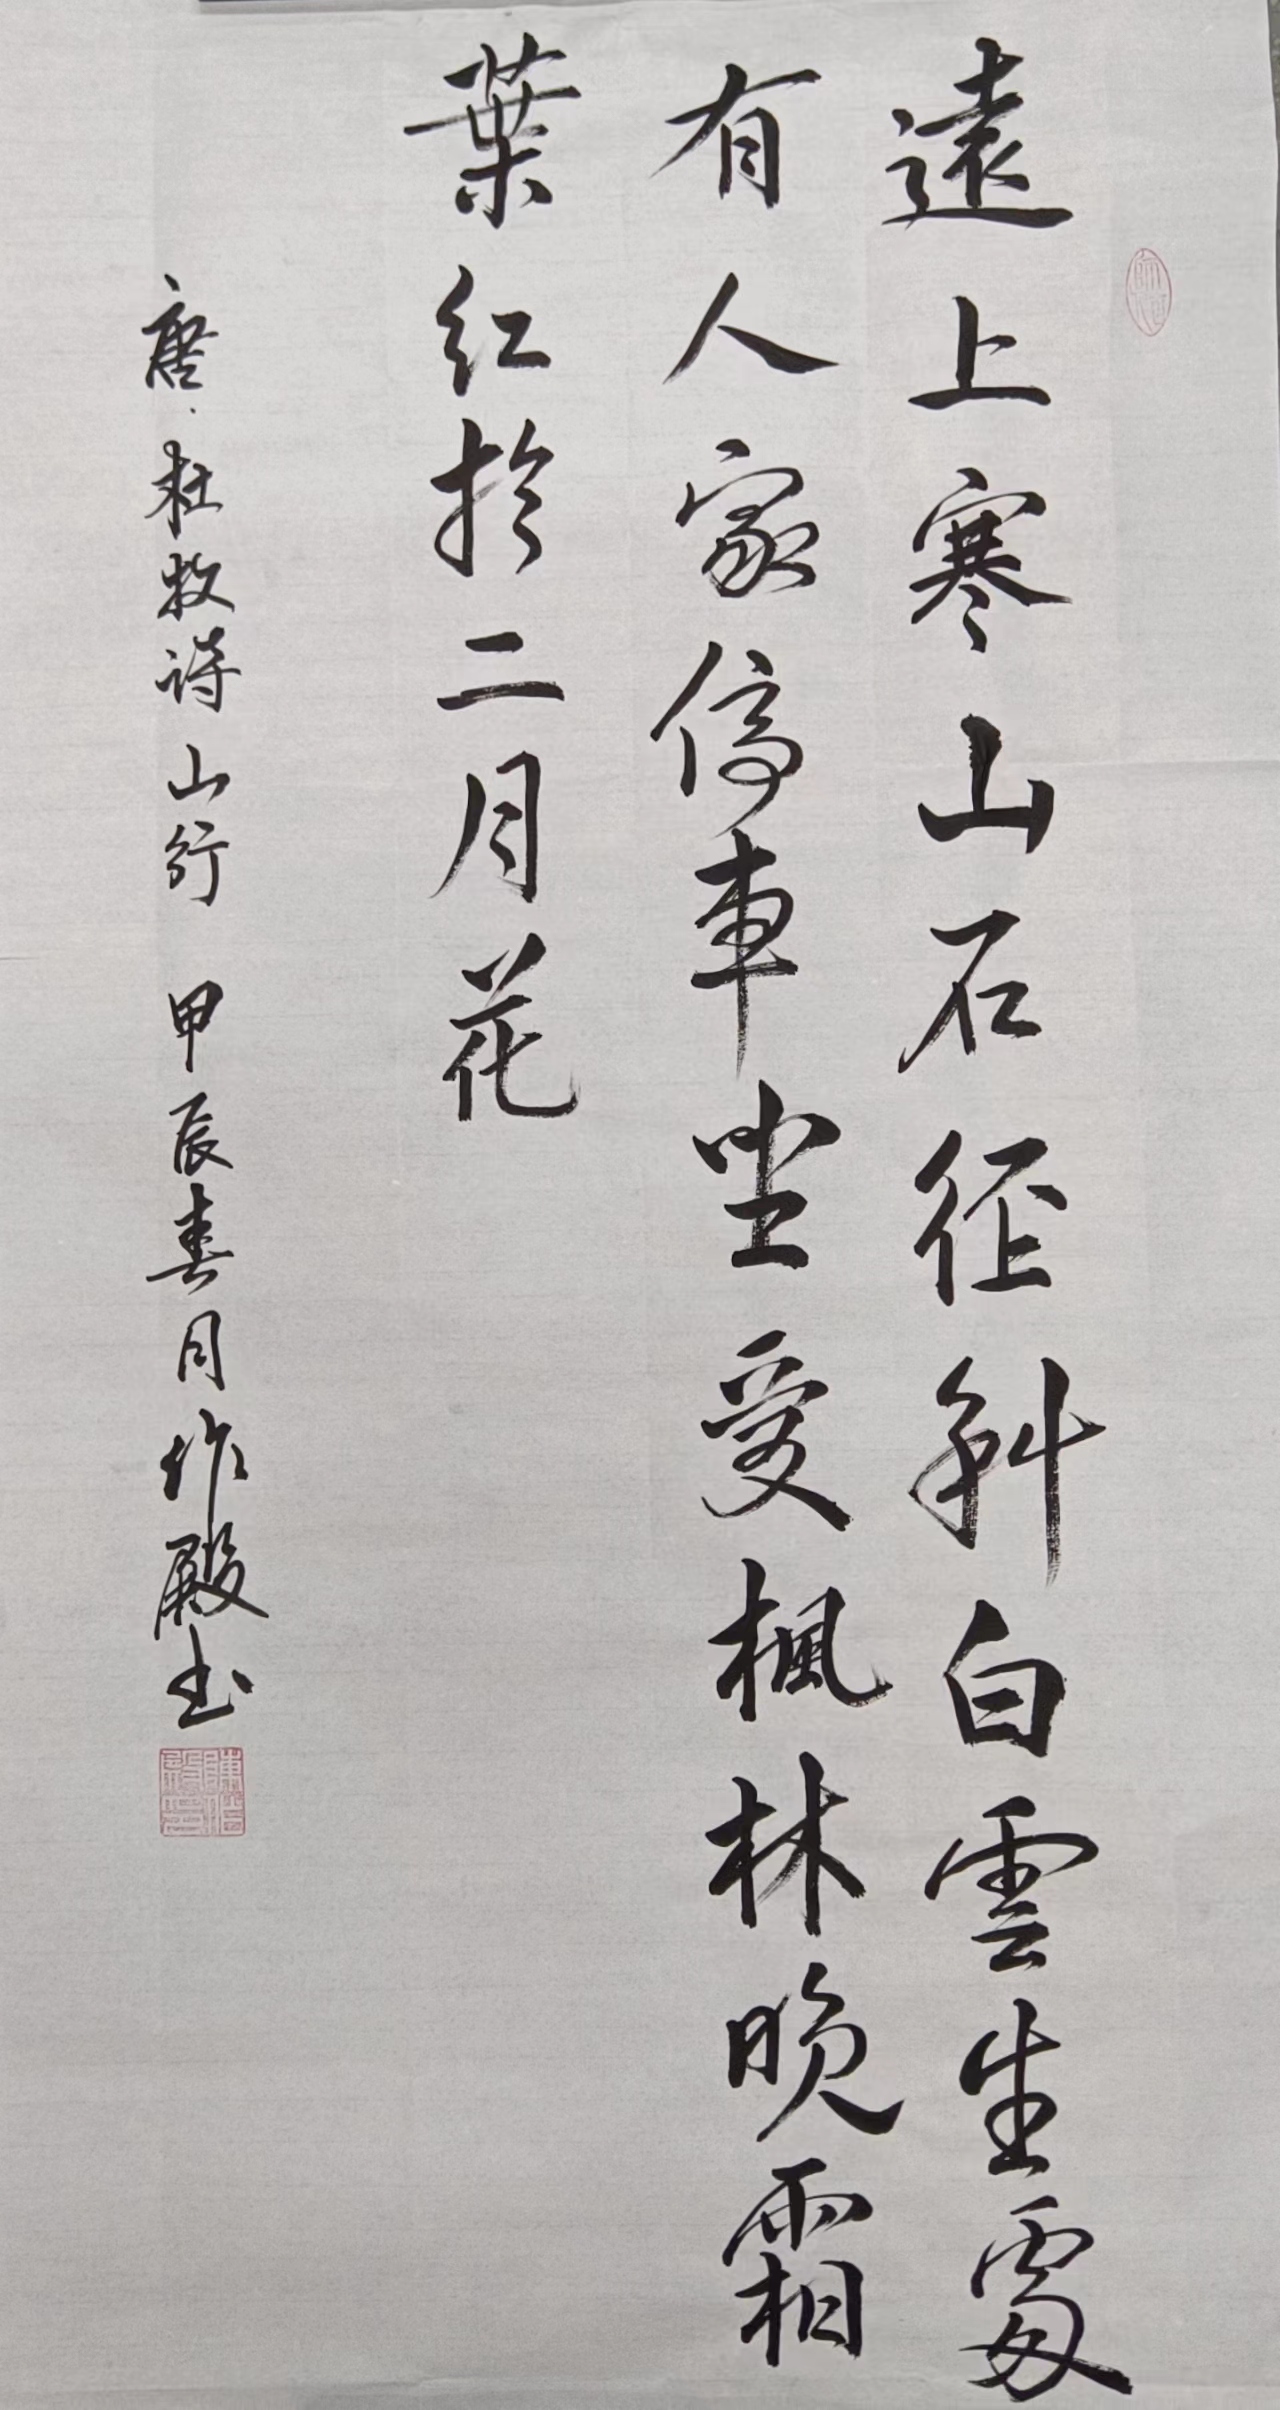 遠上寒山石径斜白雲生處
有人家停車坐愛楓林晚霜
葉紅於二月花
唐·杜牧詩山行 甲辰春月作殿玉